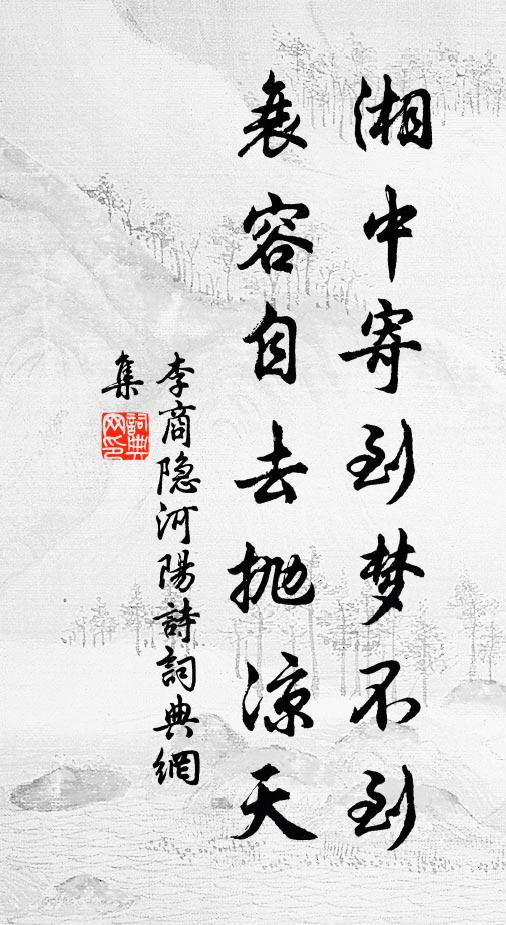 湘中寄到梦不到
衰容自去抛凉天
李商隐河陽詩詞典網
集
詞典网印